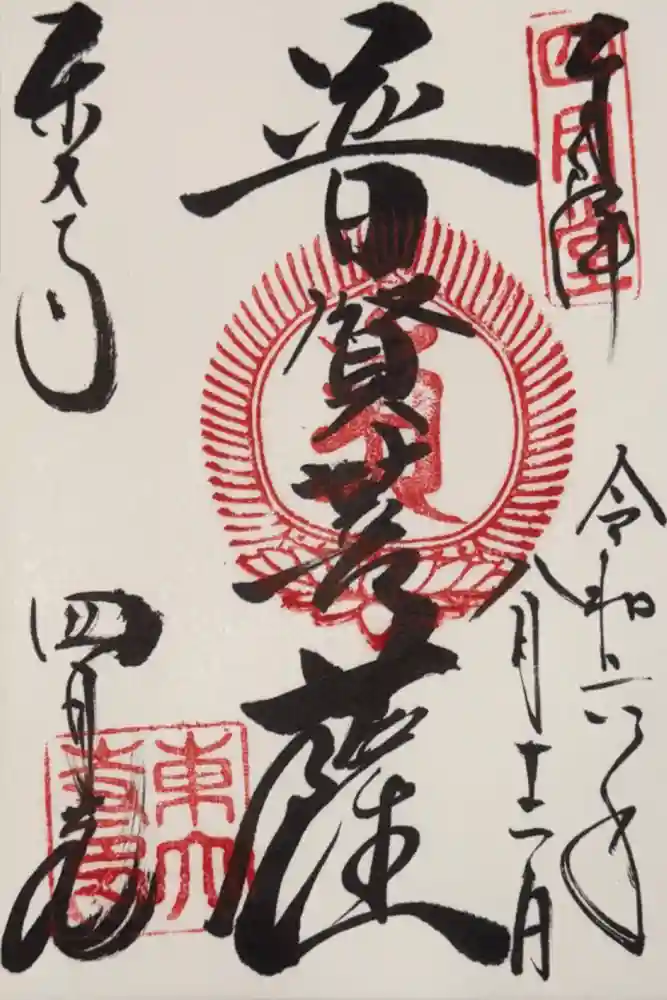 奉拝
四月堂
令和六年
八月十二日
普賢菩薩
東大寺
四月堂